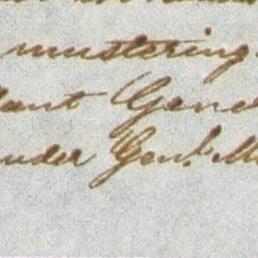 mustering
tant Gene
under Genl. M